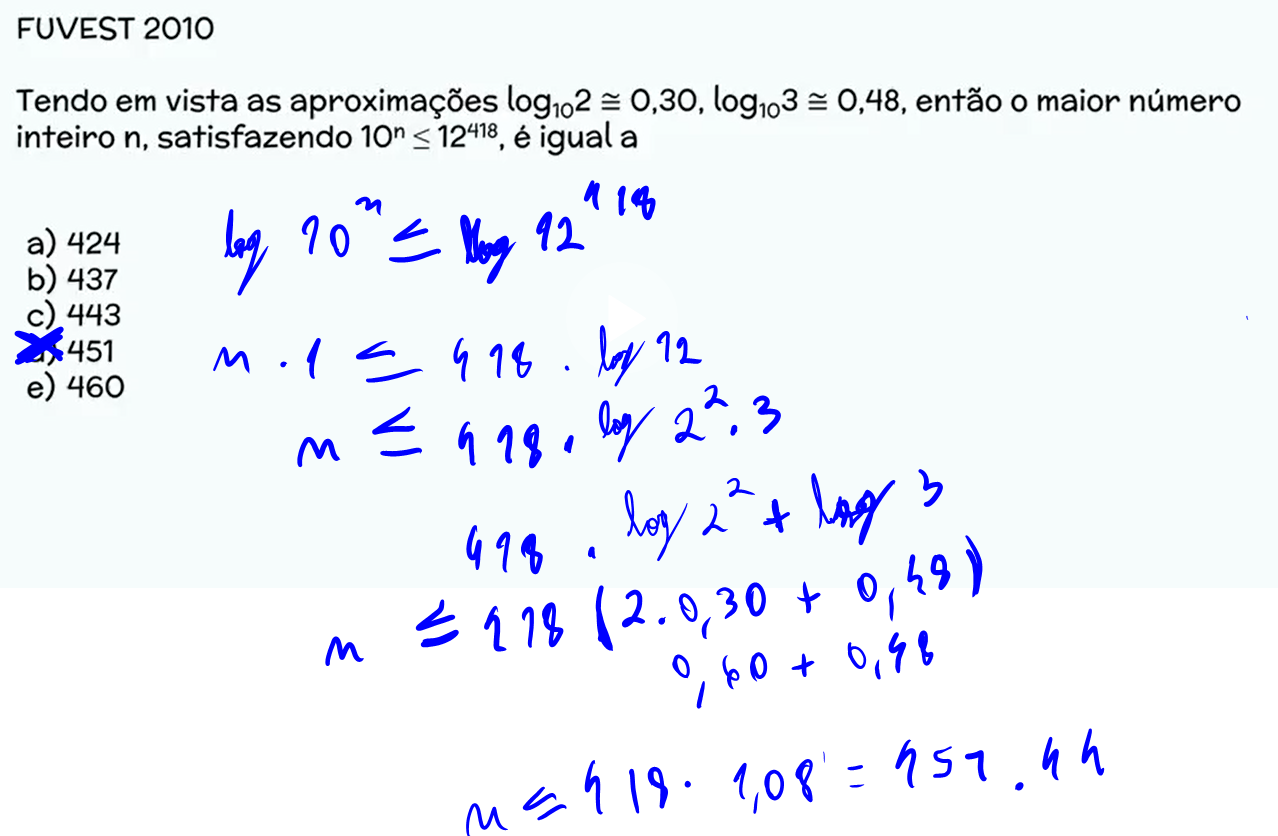 FUVEST 2010
Tendo em vista as aproximações log₁₀2 ≅ 0,30, log₁₀3 ≅ 0,48, então o maior número
inteiro n, satisfazendo 10ⁿ ≤ 12⁴¹⁸, é igual a
a) 424
b) 437
c) 443
d) 451
e) 460
log 10ⁿ ≤ log 12⁴¹⁸
n . 1 ≤ 418 . log 12
n ≤ 418 . log 2² . 3
418 . log 2² + log 3
n ≤ 418 (2.0,30 + 0,48)
0,60 + 0,48
n ≤ 418 . 1,08 = 451.44